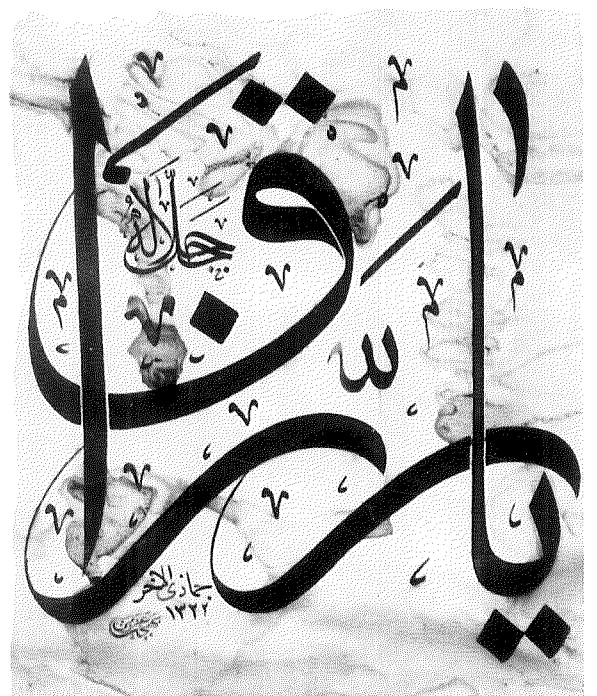 يا رزّاق
جل جلاله
جمادى الاخر
١٣٢٢